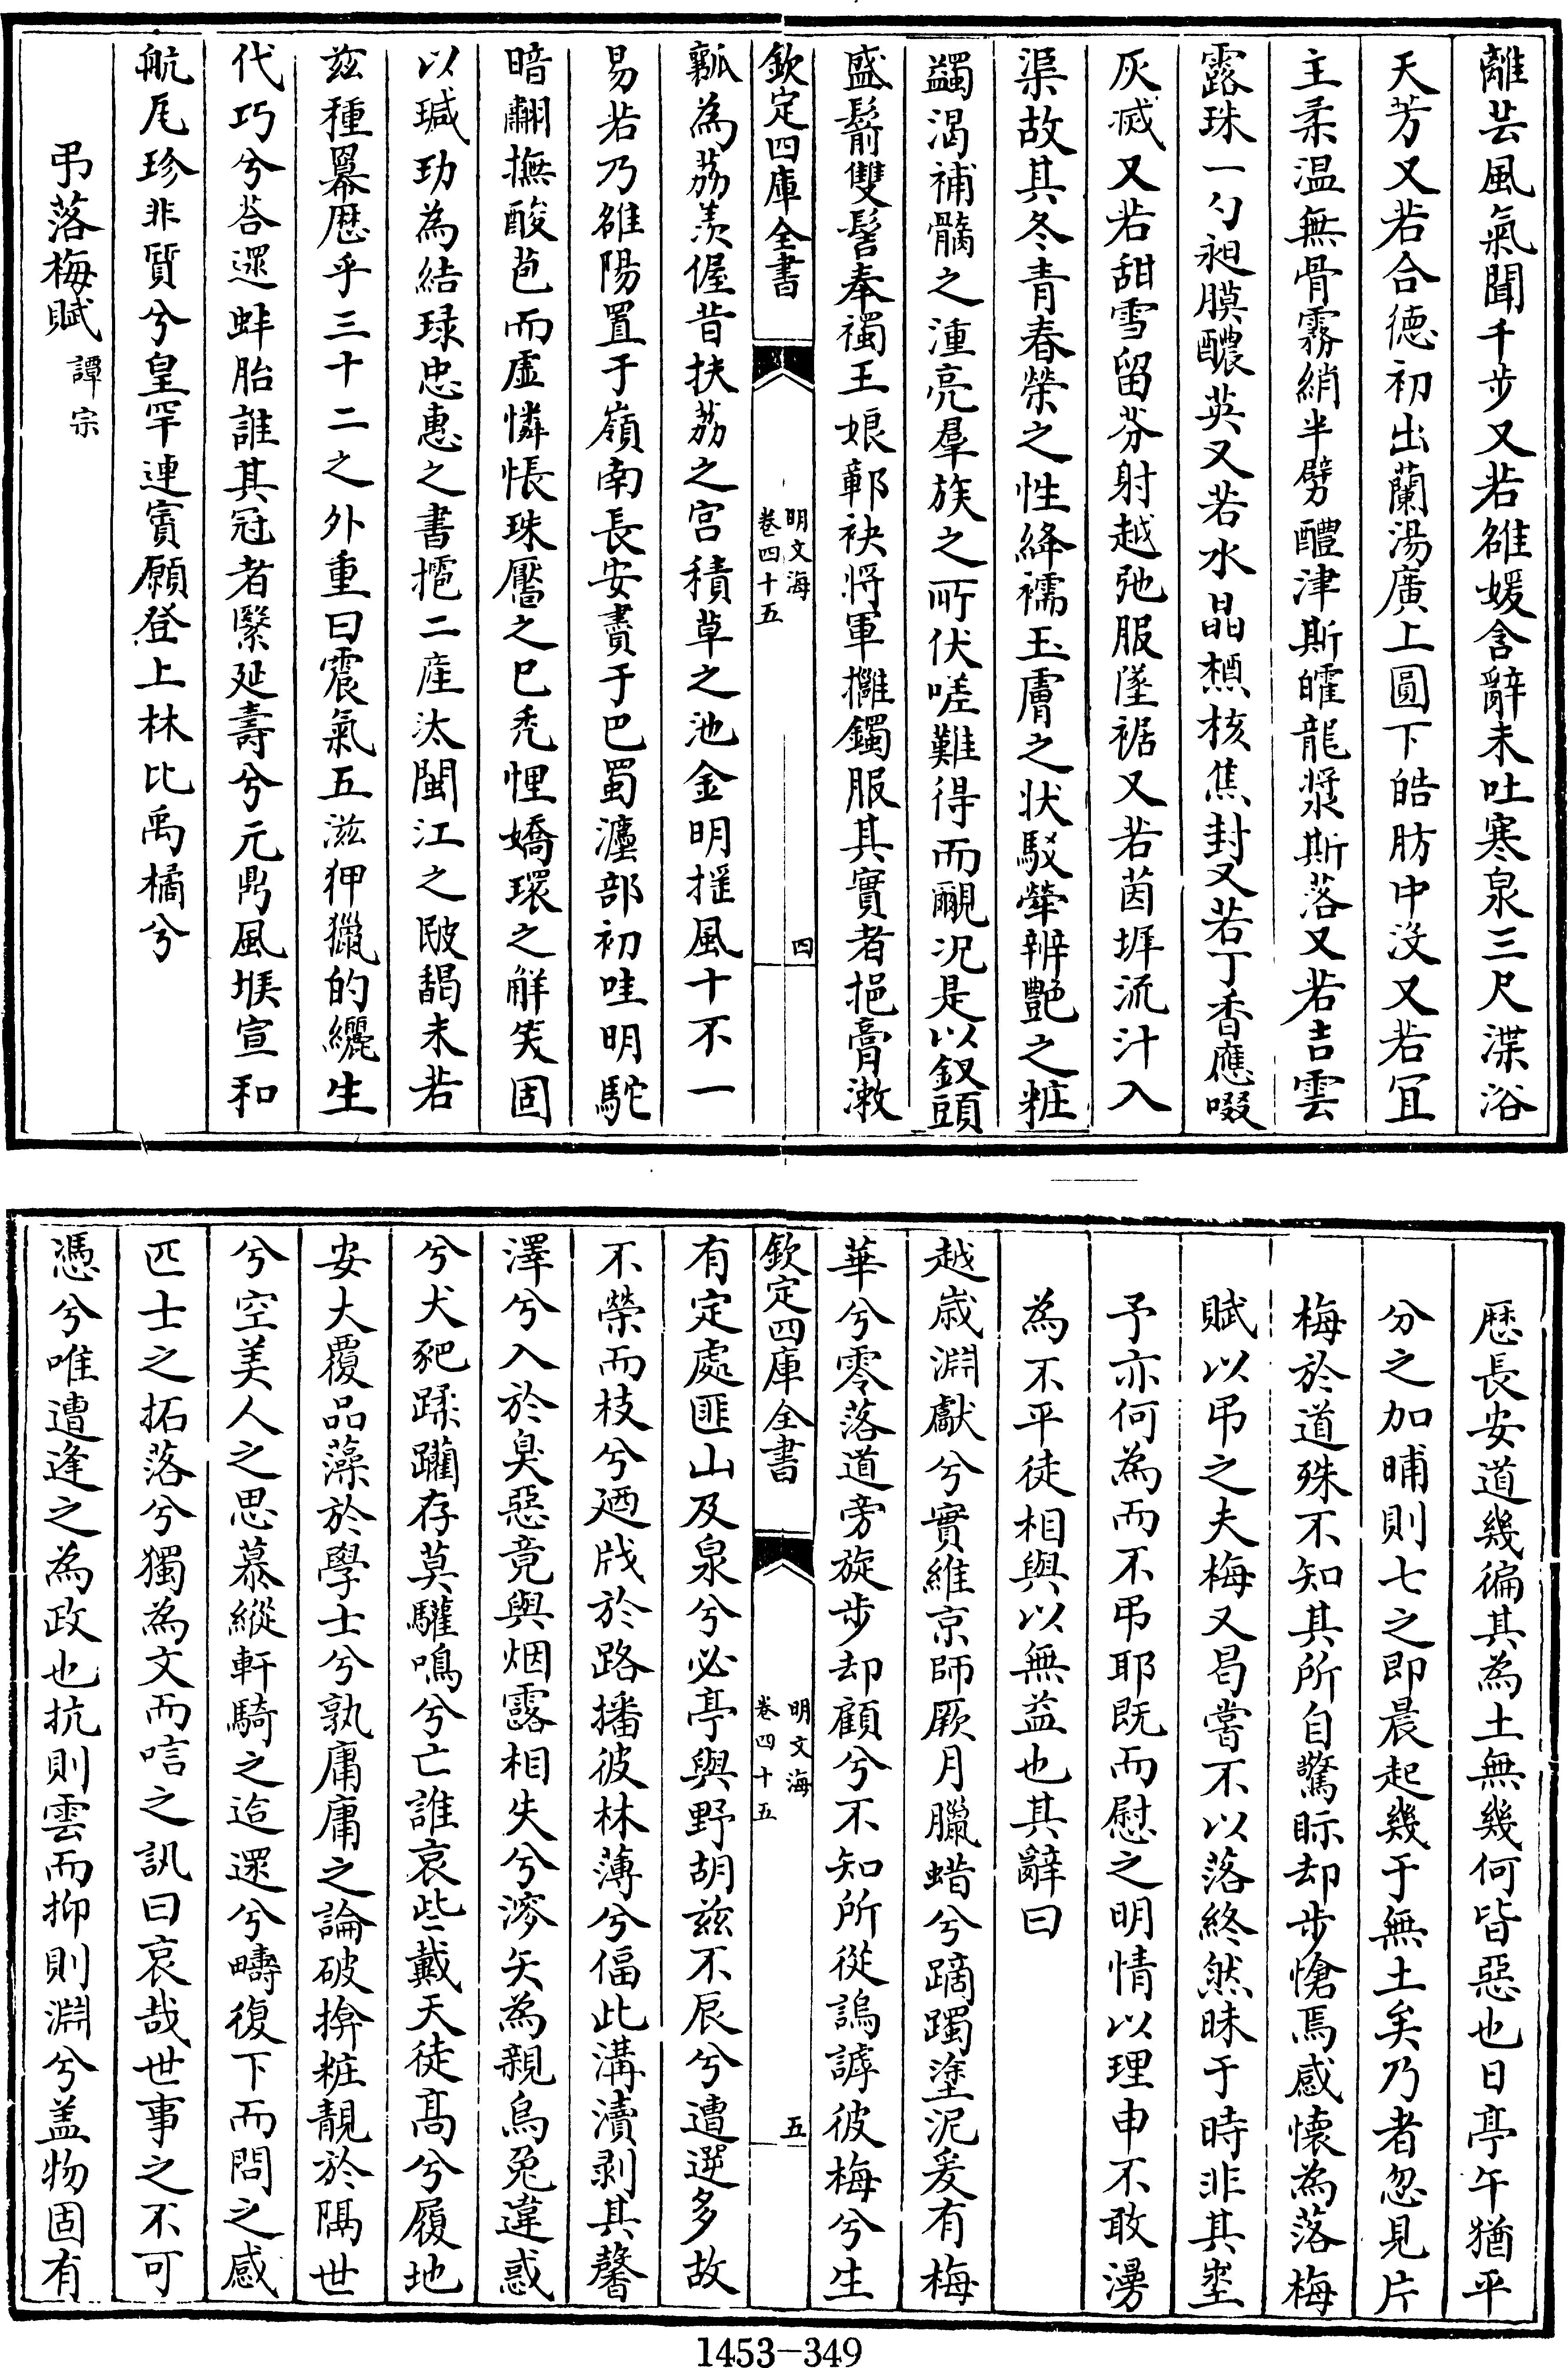 離芸風氣聞千步又若雒媛含辭未吐寒泉三尺渫浴
天芳又若合徳初出蘭湯廣上圓下皓肪中沒又若冝
主柔温無骨霧綃半劈醴津斯皬龍漿斯落又若吉雲
露珠一勺昶膜醲英又若水晶樝核焦封又若丁香應啜
灰滅又若甜雪留芬射越弛服墜裾又若茵墀流汁入
渠故其冬青春榮之性絳襦玉膚之状駁犖辨艶之粧
蠲渴補髓之湩亮羣族之所伏嗟難得而覼况是以釵頭
盛鬋雙髻奉襡王娘鄣袂将軍擁鐲服其實者挹膏漱
欽定四庫全書
明文海
卷四十五
四
瓤為荔羡偓昔扶荔之宫積草之池金明摇風十不一
易若乃雒陽置于嶺南長安賷于巴蜀瀍部初哇明駝
暗翻撫酸苞而虚憐悵珠靨之已秃悝嬌環之觧笑固
以瑊玏為結琭忠惠之書摅二産汰閩江之陂馤未若
兹種羃厯乎三十二之外重曰震氣五滋狎獵的纚生
代巧兮荅還蚌胎誰其冠者繄延壽兮元鼎風堠宣和
航尾珍非質兮皇罕連賔願登上林比禹橘兮
弔落梅賦 譚宗
厯長安道幾徧其為土無幾何皆惡也日亭午猶平
分之加晡則七之即晨起幾于無土矣乃者忽見片
梅於道殊不知其所自驚眎却步愴焉感懐為落梅
賦以弔之夫梅又曷嘗不以落終然昧于時非其𡋯
予亦何為而不弔耶既而慰之明情以理申不敢湯
為不平徒相與以無益也其辭曰
越嵗淵獻兮實維京師厥月臘蜡兮蹢躅塗泥爰有梅
華兮零落道旁旋步却顧兮不知所從嗚謼彼梅兮生
欽定四庫全書
明文海
卷四十五
五
有定處匪山及泉兮必亭與野胡兹不辰兮遭遌多故
不榮而枝兮廼戕於路播彼林薄兮偪此溝瀆剥其馨
澤兮入於臭惡竟與烟露相失兮滲矢為親烏兔違惑
兮犬豝蹂躪存莫驩鳴兮亡誰哀些戴天徒髙兮履地
安大覆品藻於學士兮孰庸庸之論破揜粧靚於隅世
兮空美人之思慕縱軒騎之迨還兮疇復下而問之感
匹士之拓落兮獨為文而唁之訊曰哀哉世事之不可
憑兮唯遭逢之為政也抗則雲而抑則淵兮盖物固有
1453-349